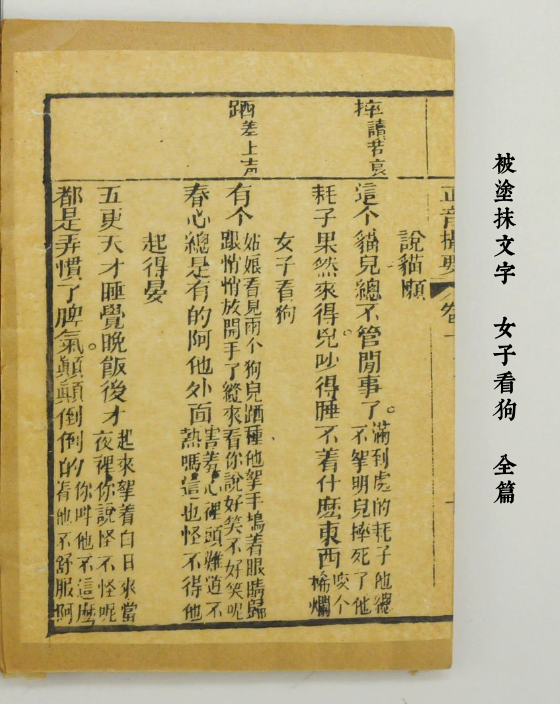 被塗抹文字 女子看狗 全篇
正音撮要
說貓懶
摔讀若衰
這个貓兒總不管閒事了。滿到處的耗子他總
不拏明兒摔死了他
耗子果然來得兇。吵得睡不着什麽東西咬个
稀爛
女子看狗
跴差上声
有个姑娘看見兩个狗兒跴種他拏手塢着眼睛歸
跟悄悄放開手了纔來看你說好笑不好笑呢
春心總是有的阿他外面害羞心裡頭難道不
熱嗎這也怪不得他
起得晏
五更天才睡覺。晚飯後才起來拏着白日來當
夜裡你說怪不怪呢
都是弄慣了脾氣顛顛倒倒的你叫他不這麼
着他不舒服阿